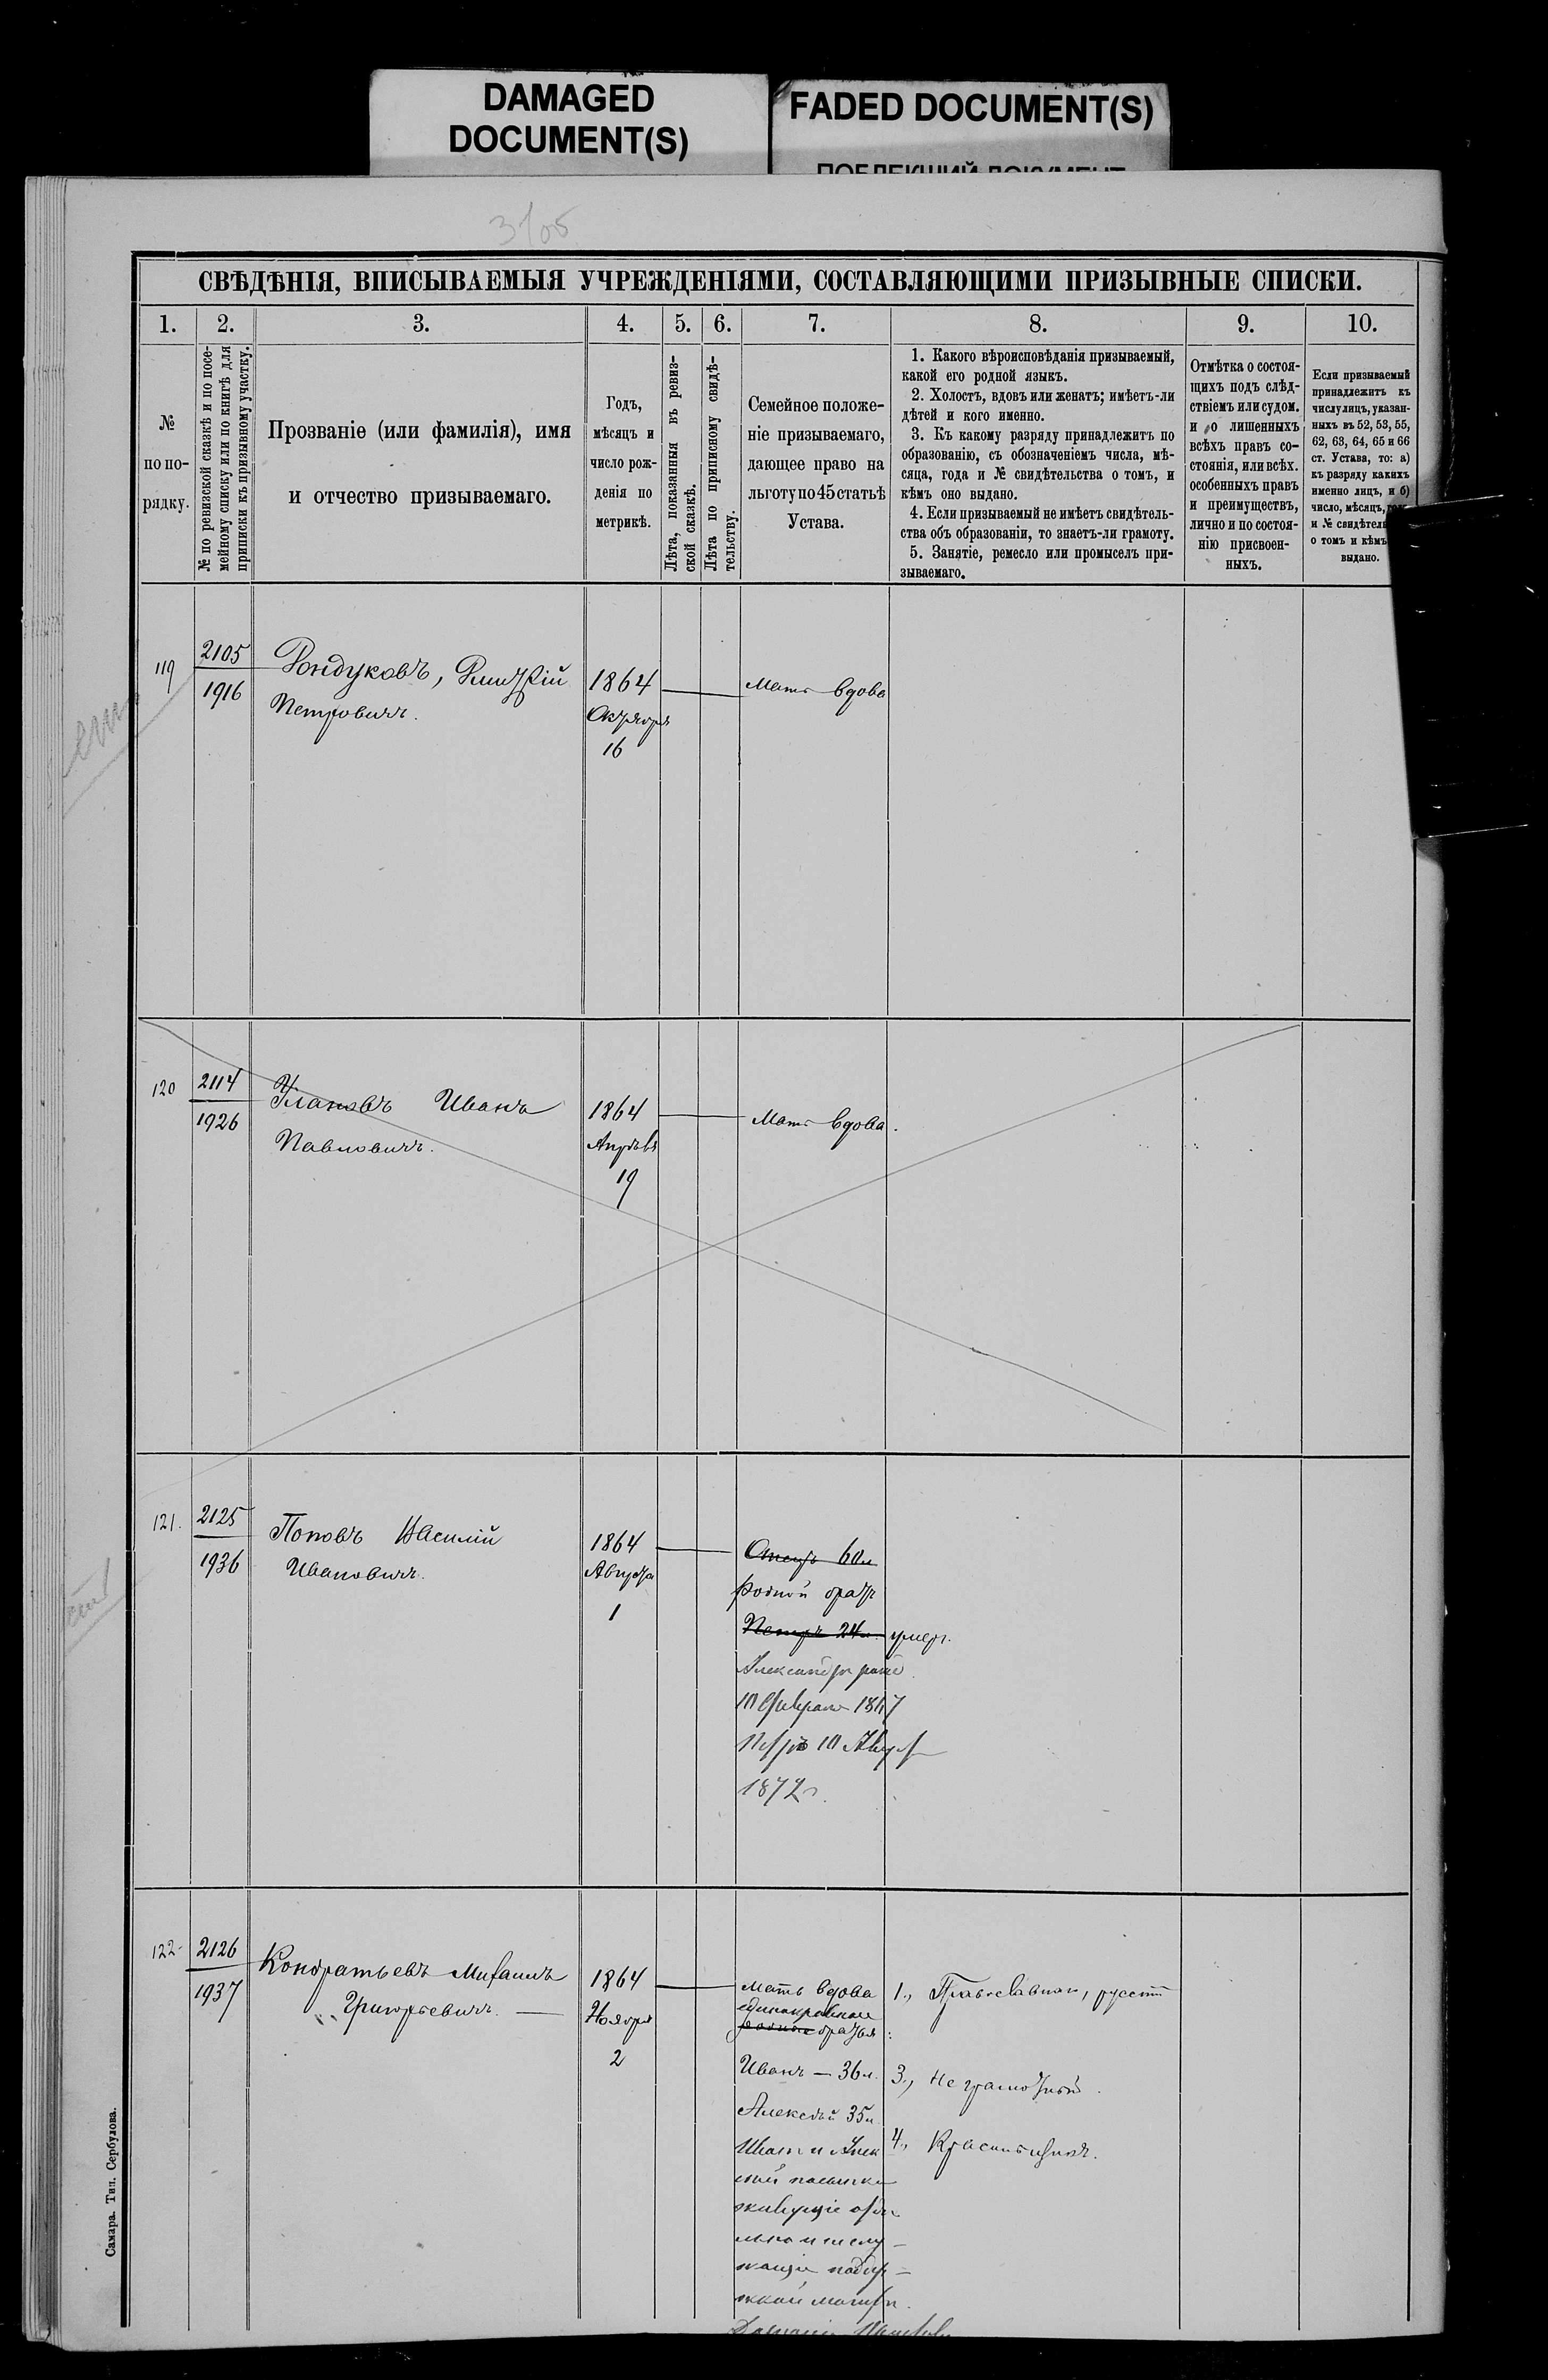 DAMAGED
DOCUMENT(S)
FADED DOCUMENT(S)
ПОБЛЕКШИЙ ДОКУМЕНТ
СВѢДѢНІЯ, ВПИСЫВАЕМЫЯ УЧРЕЖДЕНІЯМИ, СОСТАВЛЯЮЩИМИ ПРИЗЫВНЫЕ СПИСКИ.
1.
2.
3.
4.
5.
6.
7.
8.
9.
10.
№
по по-
рядку.
№ по ревизской сказкѣ и по посе-
мейному списку или по книгѣ для
приписки къ призывному участку.
Прозваніе (или фамилія), имя
и отчество призываемаго.
Годъ,
мѣсяцъ и
число рож-
денія по
метрикѣ.
Лѣта, показанныя въ ревиз-
ской сказкѣ.
Лѣта по приписному свидѣ-
тельству.
Семейное положе-
ніе призываемаго,
дающее право на
льготу по 45 статьѣ
Устава.
1. Какого вѣроисповѣданія призываемый,
какой его родной языкъ.
2. Холостъ, вдовъ или женатъ; имѣетъ-ли
дѣтей и кого именно.
3. Къ какому разряду принадлежитъ по
образованію, съ обозначеніемъ числа, мѣ-
сяца, года и № свидѣтельства о томъ, и
кѣмъ оно выдано.
4. Если призываемый не имѣетъ свидѣтель-
ства объ образованіи, то знаетъ-ли грамоту.
5. Занятіе, ремесло или промыселъ при-
зываемаго.
Отмѣтка о состоя-
щихъ подъ слѣд-
ствіемъ или судом.
и о лишенныхъ
всѣхъ правъ со-
стоянія, или всѣх.
особенныхъ правъ
и преимуществъ,
лично и по состоя-
нію присвоен-
ныхъ.
Если призываемый
принадлежитъ къ
числу лицъ, указан-
ныхъ въ 52, 53, 55,
62, 63, 64, 65 и 66
ст. Устава, то: а)
къ разряду какихъ
именно лицъ, и б)
число, мѣсяцъ,
и № свидѣтель
о томъ и кѣмъ
выдано.
119
2105
1916
Рондуковъ, Дмитрій
Петровичъ.
1864
Октября
16
Мать вдова
120
2114
1926
Улановъ Иванъ
Павловичъ.
1864
Апрѣля
19
Мать вдова.
121.
2125
1936
Поповъ Василій
Ивановичъ.
1864
Августа
1
Отецъ 60 л
родной братъ
Петръ 24 л. умер.
Александръ
10 Февраля 1867
Петръ 10 Август
1872 г.
122
2126
1937
Кондратьевъ Михаилъ
Григорьевичъ.
1864
Ноября
2
Мать вдова
единокровные
родные братья:
Иванъ — 36 л.
Алексѣй 35 л.
Иванъ и Алек
сѣй
живущіе отдѣ
льно и не слу-
жащіе поддер-
жкой матери.
1., Православнаго, русскій
3., Не грамотный.
4., Красильщикъ.
Самара. Тип. Сербулова.